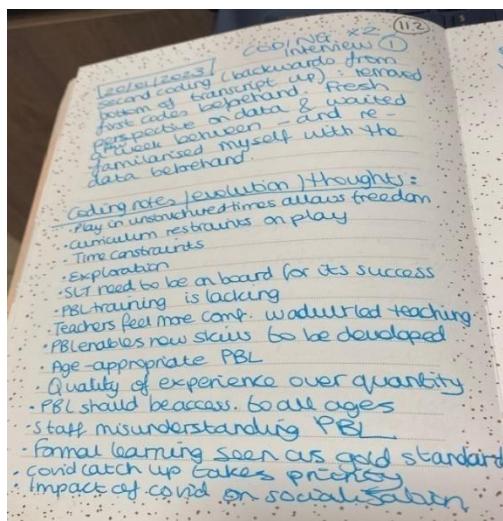 11.2
CODING x2
Interview 1
20/01/2023
Second coding (backwards from
bottom of transcript up): removed
first codes beforehand. Fresh
perspective on data & waited
a week between - and re-
familiarised myself with the
data beforehand.
Coding notes/evolution/thoughts:
• Play in unstructured times allows freedom
• curriculum restraints on play
• Time constraints
• Exploration
• SLT need to be on board for its success
• PBL training is lacking
• Teachers feel more comf. w adult led teaching
• PBL enables new skills to be developed
• Age-appropriate PBL
• Quality of experience over quantity
• PBL should be access. to all ages
• Staff misunderstanding PBL
• Formal learning seen as gold standard
• covid catch up takes priority
• Impact of covid on socialisation